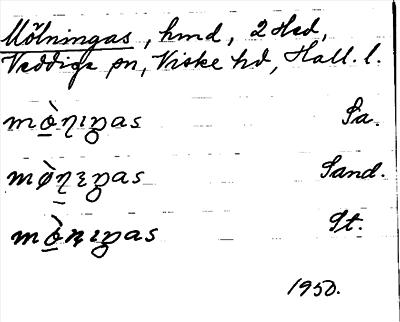 Mölningas, hmd, 2 Hed,
Veddige sn, Viske hd, Hall. l.
mò̱ηıŋas Sa.
mø̀η̱ɛŋas Sand.
mò̱ηıŋas St.
1950.